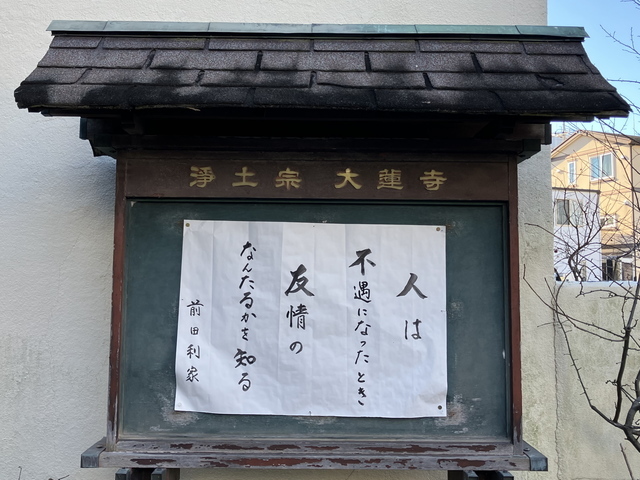 浄土宗 大蓮寺
人は
不遇になったとき
友情の
なんたるかを知る
前田利家